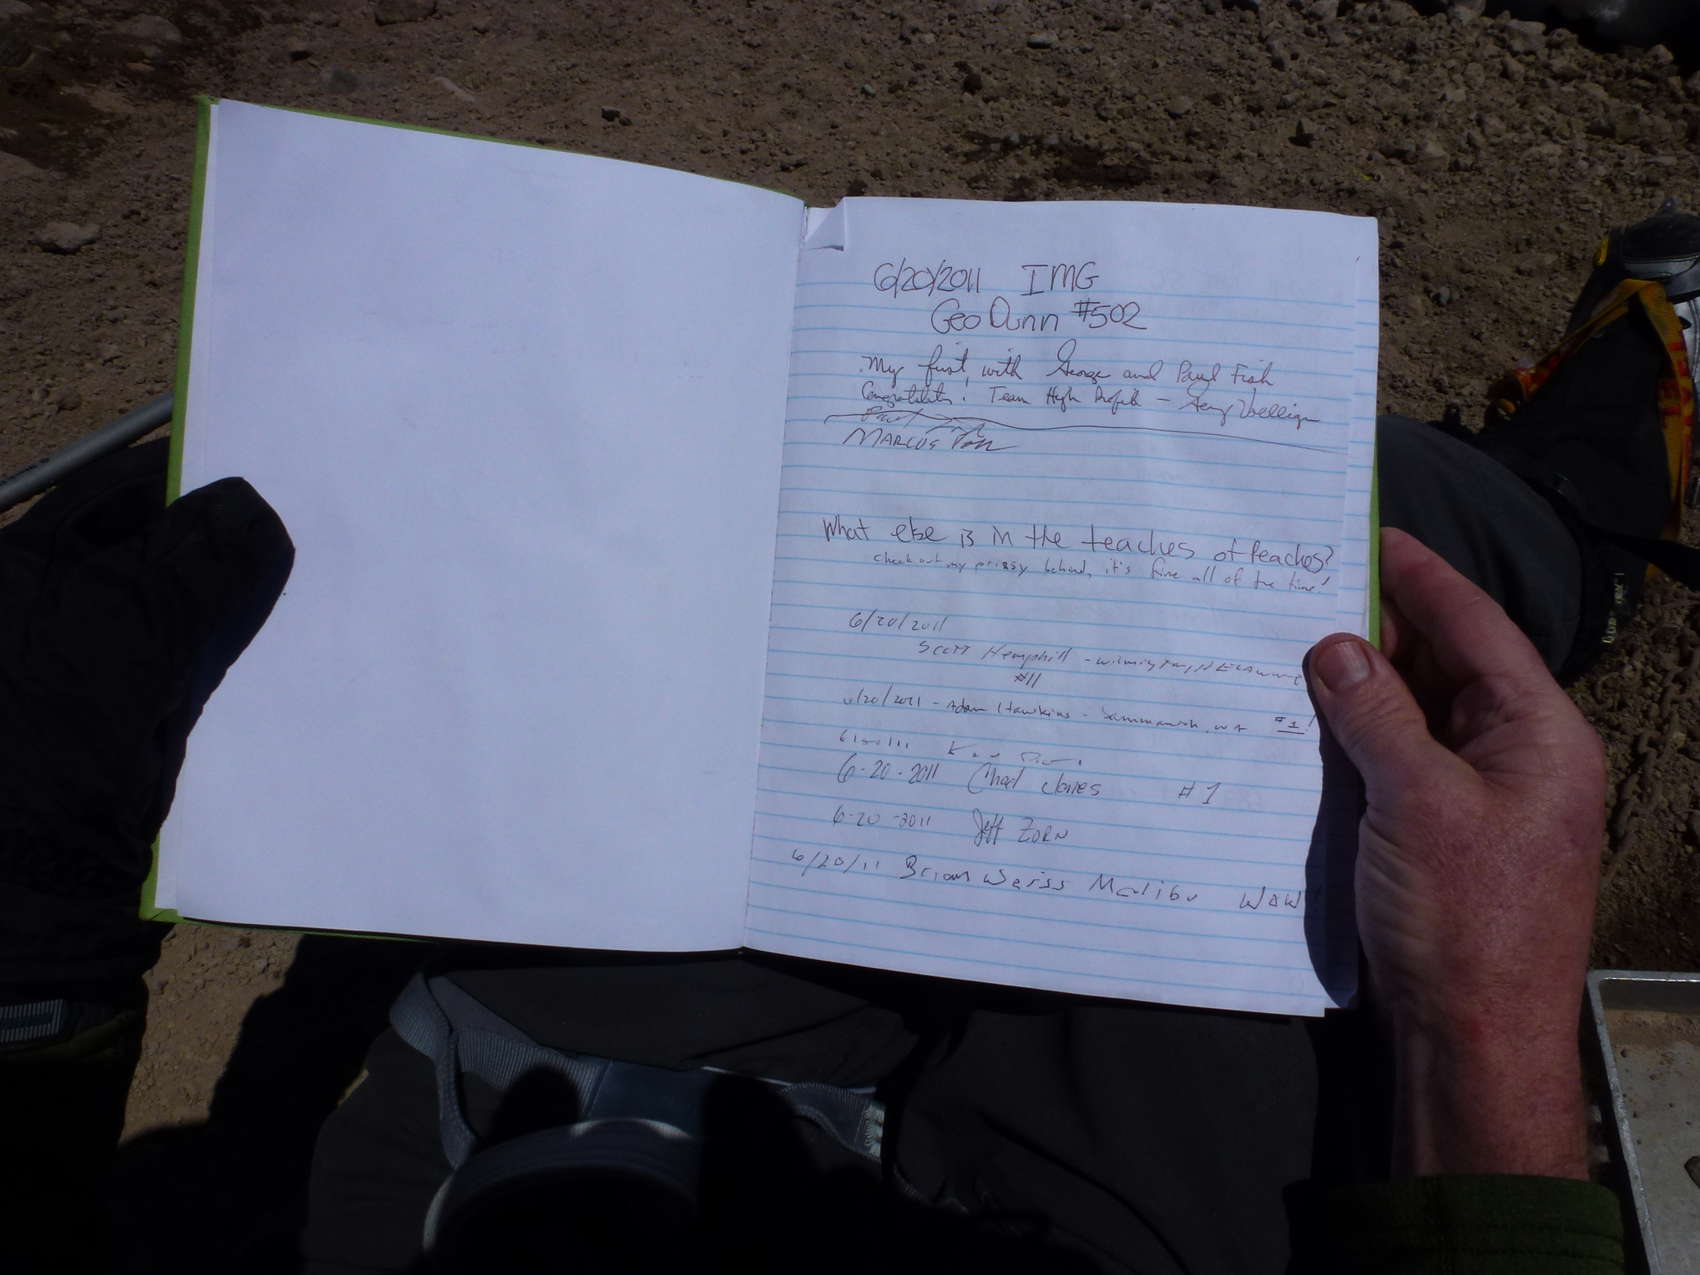 6/20/2011 IMG
Geo Dunn #502
My first with George and Paul Fish
Congratulations! Team High Profile -
Paul
MARCUS
What else is in the teaches of Peaches?
check out my prissy behind, it's fine all of the time!
6/20/2011
Scott Hemphill - Wilmington, DELAWARE
#11
6/20/2011 - Adam Hawkins - Sammamish, WA #1!
6-20-2011 Chad Jones #1
6-20-2011 Jeff ZORN
6/20/11 Brian Weiss Malibu WOW